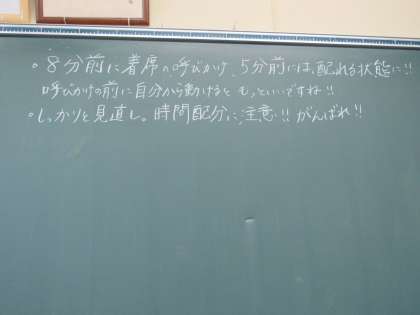 。8分前に着席の呼びかけ、5分前には、配れる状態に!!
呼びかけの前に自分から動けるともっといいですね!!
。しっかりと見直し。時間配分に注意!! がんばれ!!